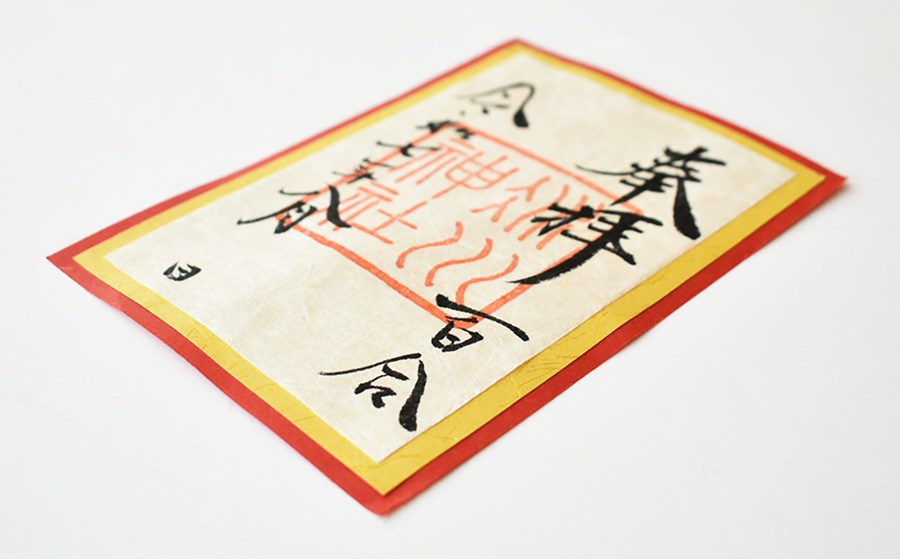 奉拝
百合
川
神社
令和七年
月
日